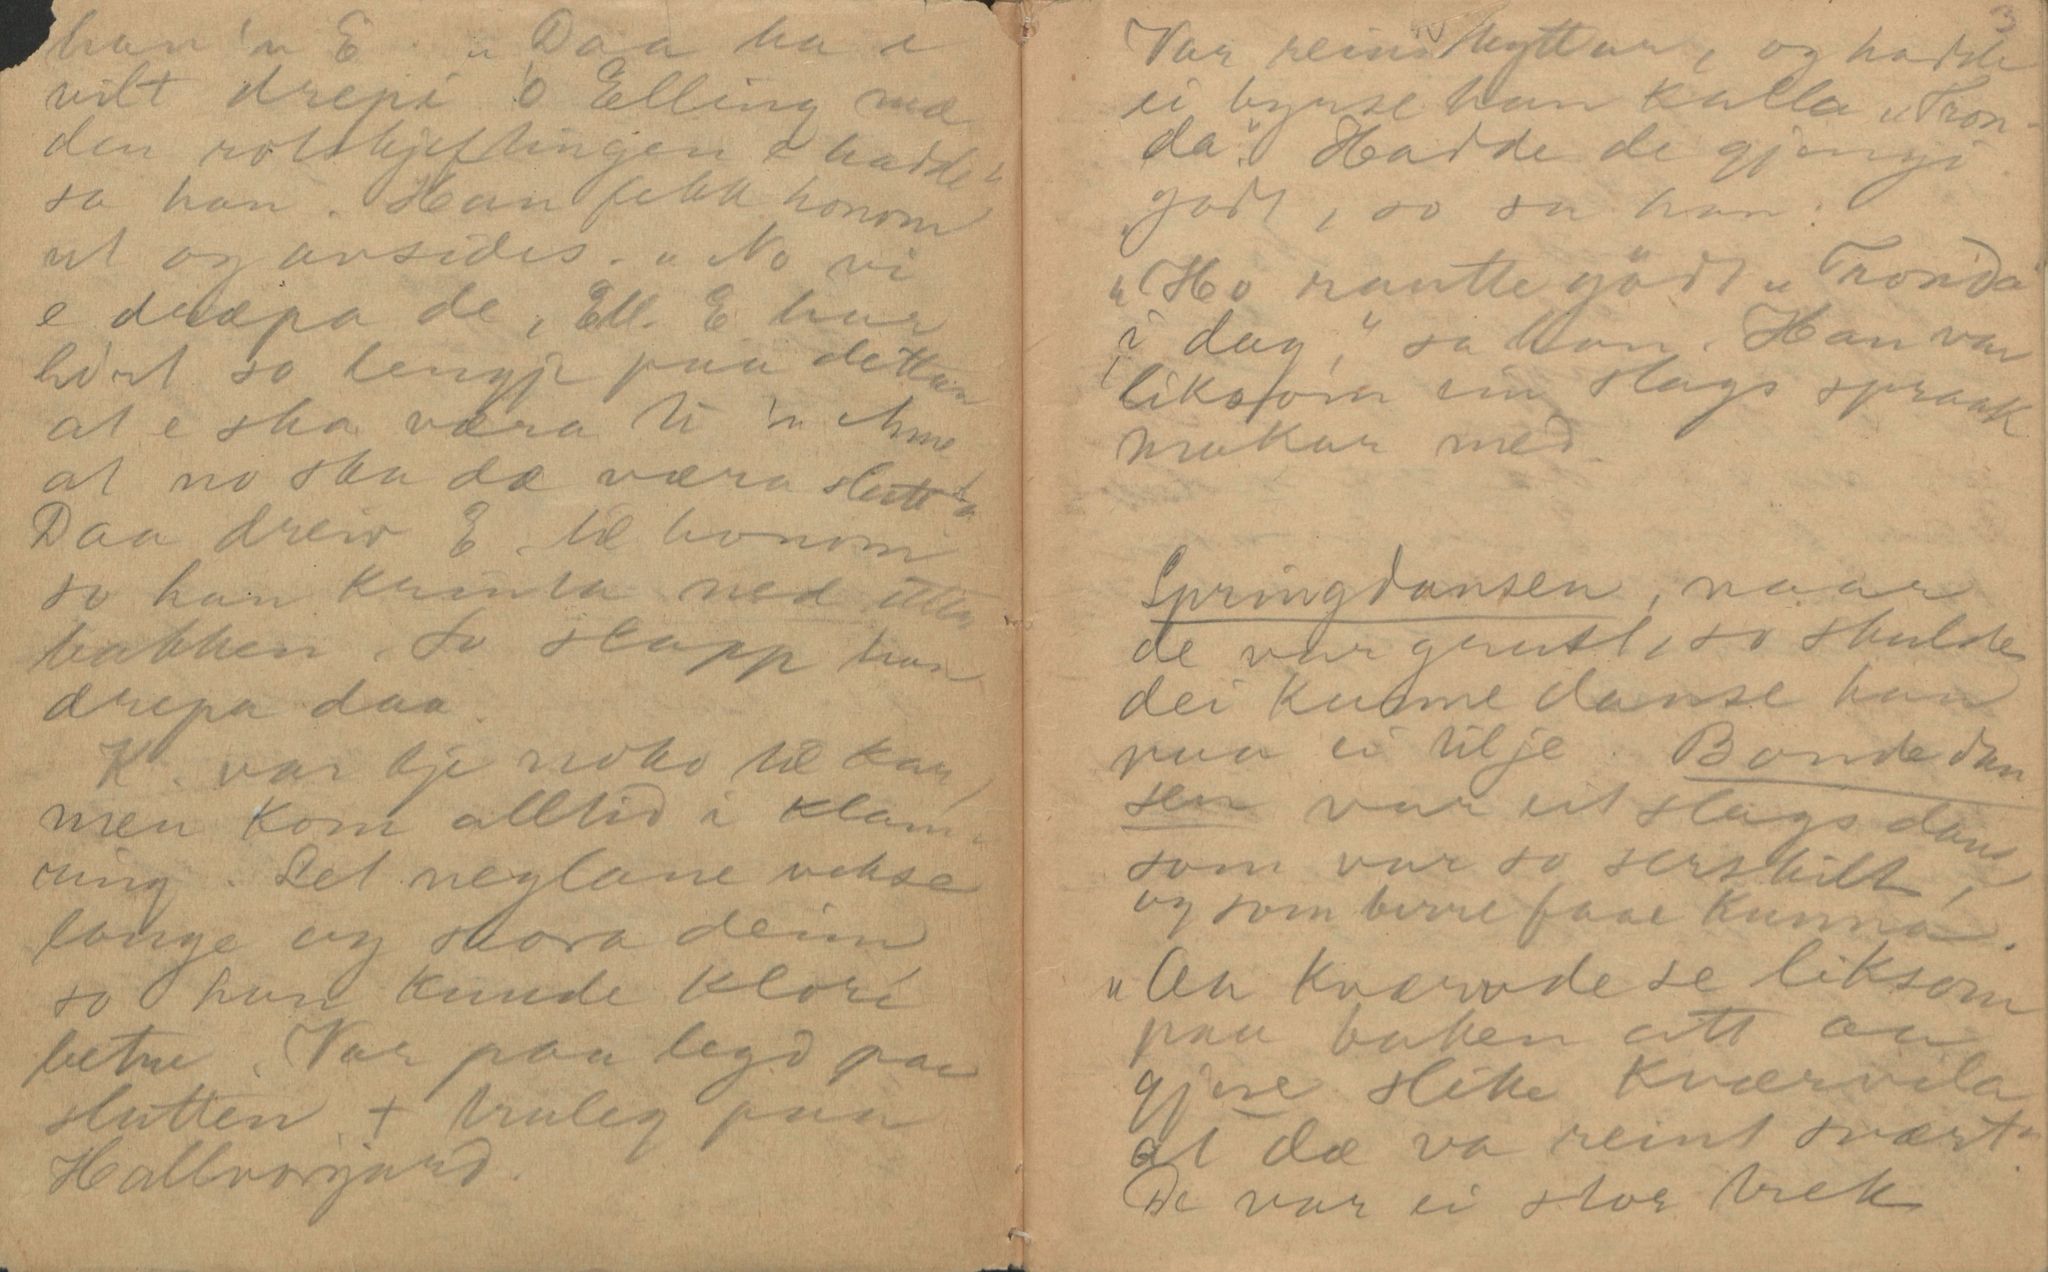 han 'n E. „Daa ha e
vilt drepi 'o Elling mæ
den rotskjeftingen e hadde"
sa han. Han fekk honom
ut og avsides. „No vi
e dræpa de, Ell. E har
hört so lengje paa dettan
at e ska væra ti 'n
at no ska dæ væra slutt"
Daa dreiv E. til honom
so han ned
bakken. So slapp han
drepa daa.
K. var kje noko til kar,
men kom alltid i klam-
ring. Let neglane vekse
lange og skora deim
so han kunde klore
betre. Var paa legd paa
slutten + truleg paa
Hallvorgard.
3
Var reinskyttar, og hadde
ei byrse han kalla „Tron-
da". Hadde de gjengi
godt, so sa han:
„Ho rautte gödt „Tronda"
i dag," sa han. Han var
liksom ein slags spraak
makar med.
Springdansen, naar
de var grust, so skulde
dei kunne danse han
paa ei tilje. Bondedan
sen var eit slags dans
som var so serskilt,
og som berre faae kunna.
„An kværvde se liksom
paa baken att an
gjere slike kværvila
at dæ va reint svært"
De var ei stor trek